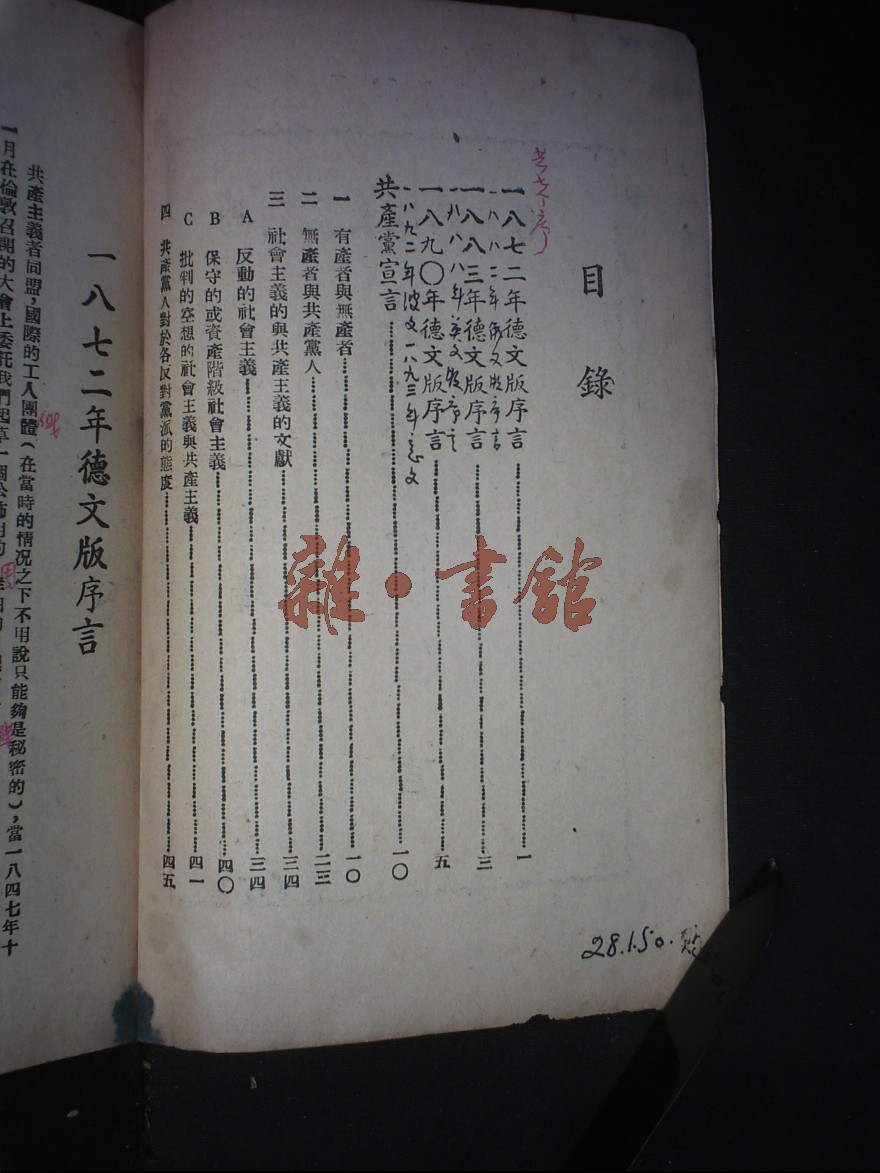 目錄
一八七二年德文版序言……一
一八八二年俄文版序言
一八八三年德文版序言……三
一八八八年英文版序言
一八九〇年德文版序言……五
一八九二年波文一八九三年意文
共產黨宣言……一〇
一 有產者與無產者……一〇
二 無產者與共產黨人……二三
三 社會主義的與共產主義的文獻……三四
A 反動的社會主義……三四
B 保守的或資產階級社會主義……四〇
C 批判的空想的社會主義與共產主義……四一
四 共產黨人對於各反對黨派的態度……四五
28.1.50.
雜·書館
一八七二年德文版序言
共產主義者同盟,國際的工人團體(在當時的情況之下不用說只能夠是秘密的),當一八四七年十
一月在倫敦召開的大會上委託我們起草一個公佈用的